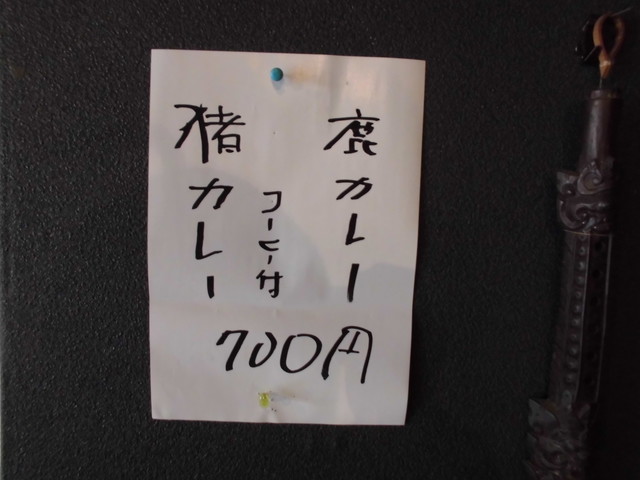 鹿カレー
コーヒー付
猪カレー
700円